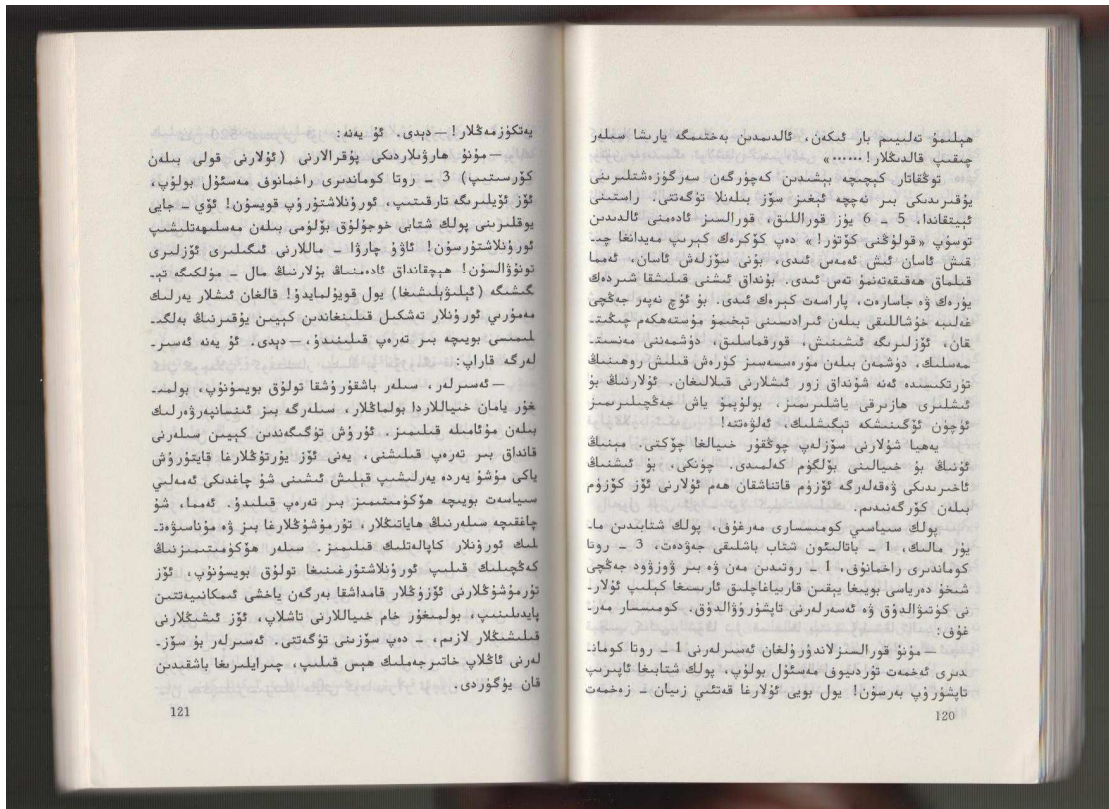 ھېلىمۇ تەلىيىم بار ئىكەن، ئالدىمدىن بەختىمگە يارىشا سىلەر
چىقىپ قالدىڭلار!……»
توڭقاتار كېچىچە بېشىدىن كەچۈرگەن سەرگۈزەشتلىرىنى
يۇقىرىدىكى بىر نەچچە ئېغىز سۆز بىلەنلا تۈگەتتى. راستىنى
ئېيتقاندا، 5 ـ 6 يۈز قوراللىق، قورالسىز ئادەمنى ئالدىدىن
توسۇپ «قولۇڭنى كۆتۈر!» دەپ كۆكرەك كېرىپ مەيدانغا چىـ
قىش ئاسان ئىش ئەمەس ئىدى، بۇنى سۆزلەش ئاسان، ئەمما
قىلماق ھەقىقەتەنمۇ تەس ئىدى. بۇنداق ئىشنى قىلىشقا شىردەك
يۈرەك ۋە جاسارەت، پاراسەت كېرەك ئىدى. بۇ ئۈچ نەپەر جەڭچى
غەلىبە خۇشاللىقى بىلەن ئىرادىسىنى تېخىمۇ مۇستەھكەم چىڭىتـ
قان، ئۆزلىرىگە ئىشىنىش، قورقماسلىق، دۈشمەننى مەنسىتـ
مەسلىك، دۈشمەن بىلەن مۇرەسسەسىز كۈرەش قىلىش روھىنىڭ
تۈرتكىسىدە ئەنە شۇنداق زور ئىشلارنى قىلالىغان. ئۇلارنىڭ بۇ
ئىشلىرى ھازىرقى ياشلىرىمىز، بولۇپمۇ ياش جەڭچىلىرىمىز
ئۈچۈن ئۆگىنىشكە تېگىشلىك، ئەلۋەتتە!
يەھيا شۇلارنى سۆزلەپ چوڭقۇر خىيالغا چۆكتى. مېنىڭ
ئۇنىڭ بۇ خىيالىنى بۆلگۈم كەلمىدى. چۈنكى، بۇ ئىشنىڭ
ئاخىرىدىكى ۋەقەلەرگە ئۆزۈم قاتناشقان ھەم ئۇلارنى ئۆز كۆزۈم
بىلەن كۆرگەنىدىم.
پولك سىياسىي كومىسسارى مەرغۇق، پولك شتابىدىن ماـ
يۈر مالىك، 1 ـ باتالىئون شتاب باشلىقى جەۋدەت، 3 ـ روتا
كوماندىرى راخمانوف، 1 ـ روتىدىن مەن ۋە بىر ۋوزۋود جەڭچى
شىخۇ دەرياسى بويىغا يېقىن قارىياغاچلىق ئارىسىغا كېلىپ ئۇلارـ
نى كۈتىۋالدۇق ۋە ئەسىرلەرنى تاپشۇرۇۋالدۇق. كومىسسار مەرـ
غۇق:
—مۇنۇ قورالسىزلاندۇرۇلغان ئەسىرلەرنى 1 ـ روتا كومانـ
دىرى ئەخمەت تۇردىنيوف مەسئۇل بولۇپ، پولك شتابىغا ئاپىرىپ
تاپشۇرۇپ بەرسۇن! يول بويى ئۇلارغا قەتئىي زىيان ـ زەخمەت
120
يەتكۈزمەڭلار!—دېدى. ئۇ يەنە:
—مۇنۇ ھارۋىلاردىكى پۇقرالارنى (ئۇلارنى قولى بىلەن
كۆرسىتىپ) 3 ـ روتا كوماندىرى راخمانوف مەسئۇل بولۇپ،
ئۆز ئۆيلىرىگە تارقىتىپ، ئورۇنلاشتۇرۇپ قويسۇن! ئۆي ـ جايى
يوقلىرىنى پولك شتابى خوجۇلۇق بۆلۈمى بىلەن مەسلىھەتلىشىپ
ئورۇنلاشتۇرسۇن! ئاۋۇ چارۋا ـ ماللارنى ئىگىلىرى ئۆزلىرى
تونۇۋالسۇن! ھېچقانداق ئادەمنىڭ بۇلارنىڭ مال ـ مۈلكىگە تېـ
گىشىگە (ئېلىۋېلىشىغا) يول قويۇلمايدۇ! قالغان ئىشلار يەرلىك
مەمۇرىي ئورۇنلار تەشكىل قىلىنغاندىن كېيىن يۇقىرىنىڭ بەلگىـ
لىمىسى بويىچە بىر تەرەپ قىلىنىدۇ،—دېدى. ئۇ يەنە ئەسىرـ
لەرگە قاراپ:
—ئەسىرلەر، سىلەر باشقۇرۇشقا تولۇق بويسۇنۇپ، بولمىـ
غۇر يامان خىياللاردا بولماڭلار، سىلەرگە بىز ئىنسانپەرۋەرلىك
بىلەن مۇئامىلە قىلىمىز. ئۇرۇش تۈگىگەندىن كېيىن سىلەرنى
قانداق بىر تەرەپ قىلىشنى، يەنى ئۆز يۇرتۇڭلارغا قايتۇرۇش
ياكى مۇشۇ يەردە يەرلىشىپ قېلىش ئىشىنى شۇ چاغدىكى ئەمەلىي
سىياسەت بويىچە ھۆكۈمىتىمىز بىر تەرەپ قىلىدۇ. ئەمما، شۇ
چاغقىچە سىلەرنىڭ ھاياتىڭلار، تۇرمۇشۇڭلارغا بىز ۋە مۇناسىۋەتـ
لىك ئورۇنلار كاپالەتلىك قىلىمىز. سىلەر ھۆكۈمىتىمىزنىڭ
كەڭچىلىك قىلىپ ئورۇنلاشتۇرغىنىغا تولۇق بويسۇنۇپ، ئۆز
تۇرمۇشۇڭلارنى ئۆزۇڭلار قامداشقا بەرگەن ياخشى ئىمكانىيەتتىن
پايدىلىنىپ، بولمىغۇر خام خىياللارنى تاشلاپ، ئۆز ئىشىڭلارنى
قىلىشىڭلار لازىم، ـ دەپ سۆزىنى تۈگەتتى. ئەسىرلەر بۇ سۆزـ
لەرنى ئاڭلاپ خاتىرجەملىك ھېس قىلىپ، چىرايلىرىغا باشقىدىن
قان يۈگۈردى.
121